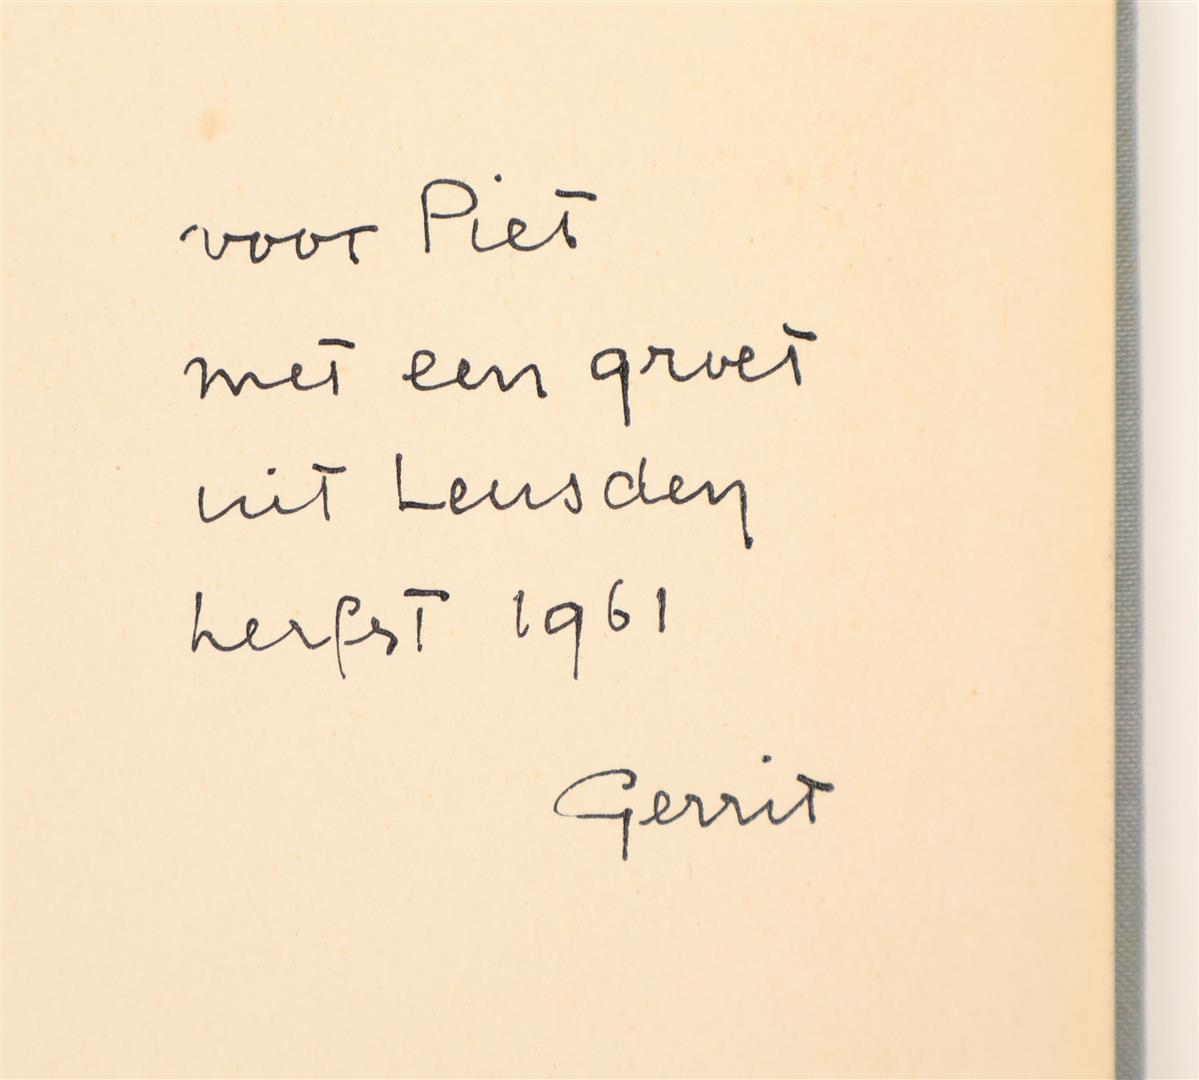 voor Piet
met een groet
uit Leusden
herfst 1961
Gerrit